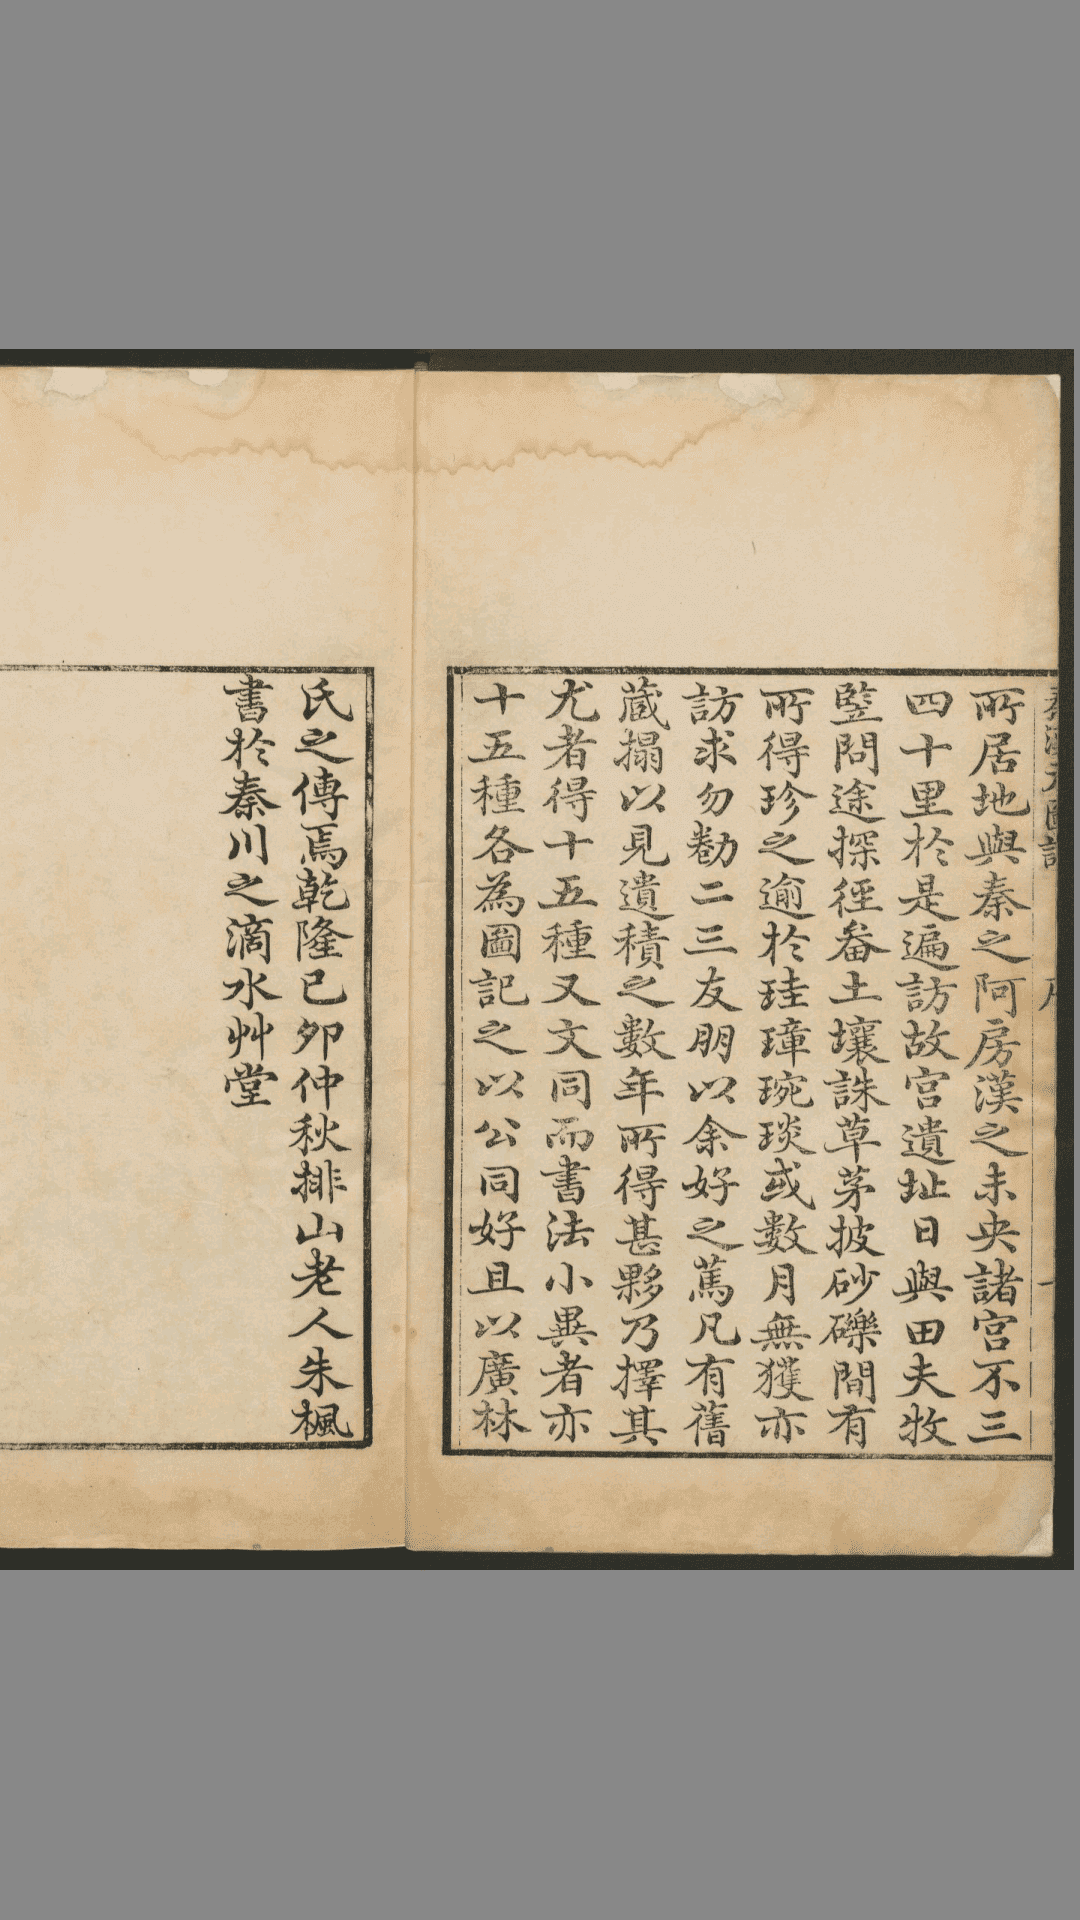 所居地與秦之阿房漢之未央諸宫不三
四十里扵是遍訪故宫遺址日與田夫牧
竪問途探徑畚土壤誅草茅披砂礫間有
所得珍之逾扵珪璋琬琰或數月無獲亦
訪求勿勌二三友朋以余好之篤凡有舊
蔵搨以見遺積之數年所得甚夥乃擇其
尤者得十五種又文同而書法小異者亦
十五種各為圖記之以公同好且以廣林
氏之傳焉乾隆已夘仲秋排山老人朱楓
書扵秦川之滴水艸堂